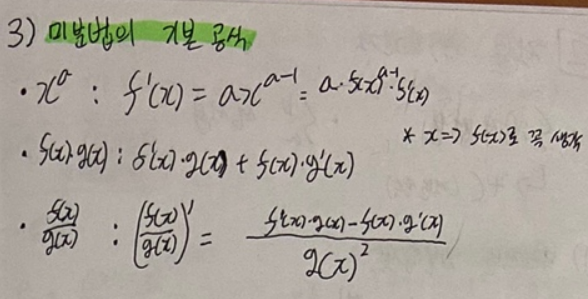 3) 미분법의 기본 공식
· x^a : f'(x) = ax^{a-1} = a·f(x)^{a-1}·f'(x)
* x => f(x)로 꼭 생각
· f(x)·g(x) : f'(x)·g(x) + f(x)·g'(x)
· f(x)/g(x) : (f(x)/g(x))' = (f'(x)·g(x) - f(x)·g'(x))/g(x)^2